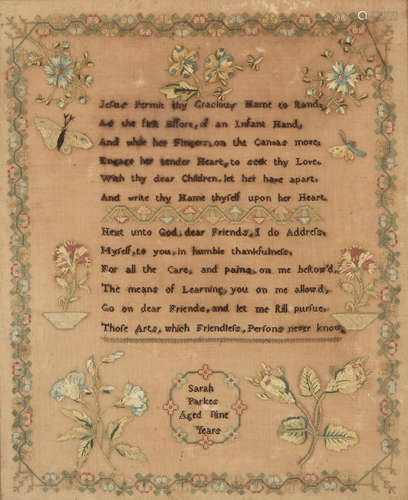 Jesus Permit thy Gracious Name to Stand,
As the first Efforts, of an Infant Hand,
And while her Fingers, on the Canvas move,
Engage her tender Heart, to seek thy Love,
With thy dear Children, let her have apart,
And write thy Name thyself upon her Heart.
Next unto God, dear Friends, I do Address,
Myself, to you, in humble thankfulness,
For all the Care, and pains, on me bestow'd,
The means of Learning, you on me allow'd,
Go on dear Friends, and let me still pursue,
Those Arts, which Friendless, Persons never know,
Sarah
Parkes
Aged Nine
Years